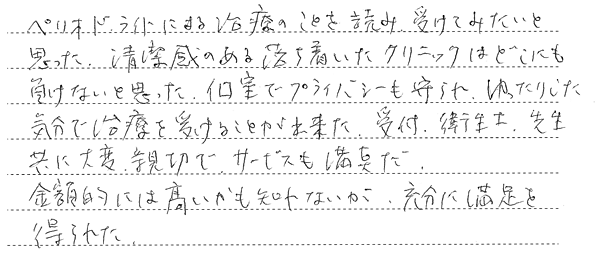 ペリオドライトによる治療のことを読み、受けてみたいと
思った。清潔感のある落ち着いたクリニックはどこにも
負けないと思った。個室でプライバシーも守られ、ゆったりした
気分で治療を受けることが出来た。受付、衛生士、先生
共に大変、親切で、サービスも満点だ。
金額的には高いかも知れないが、充分に満足を
得られた。